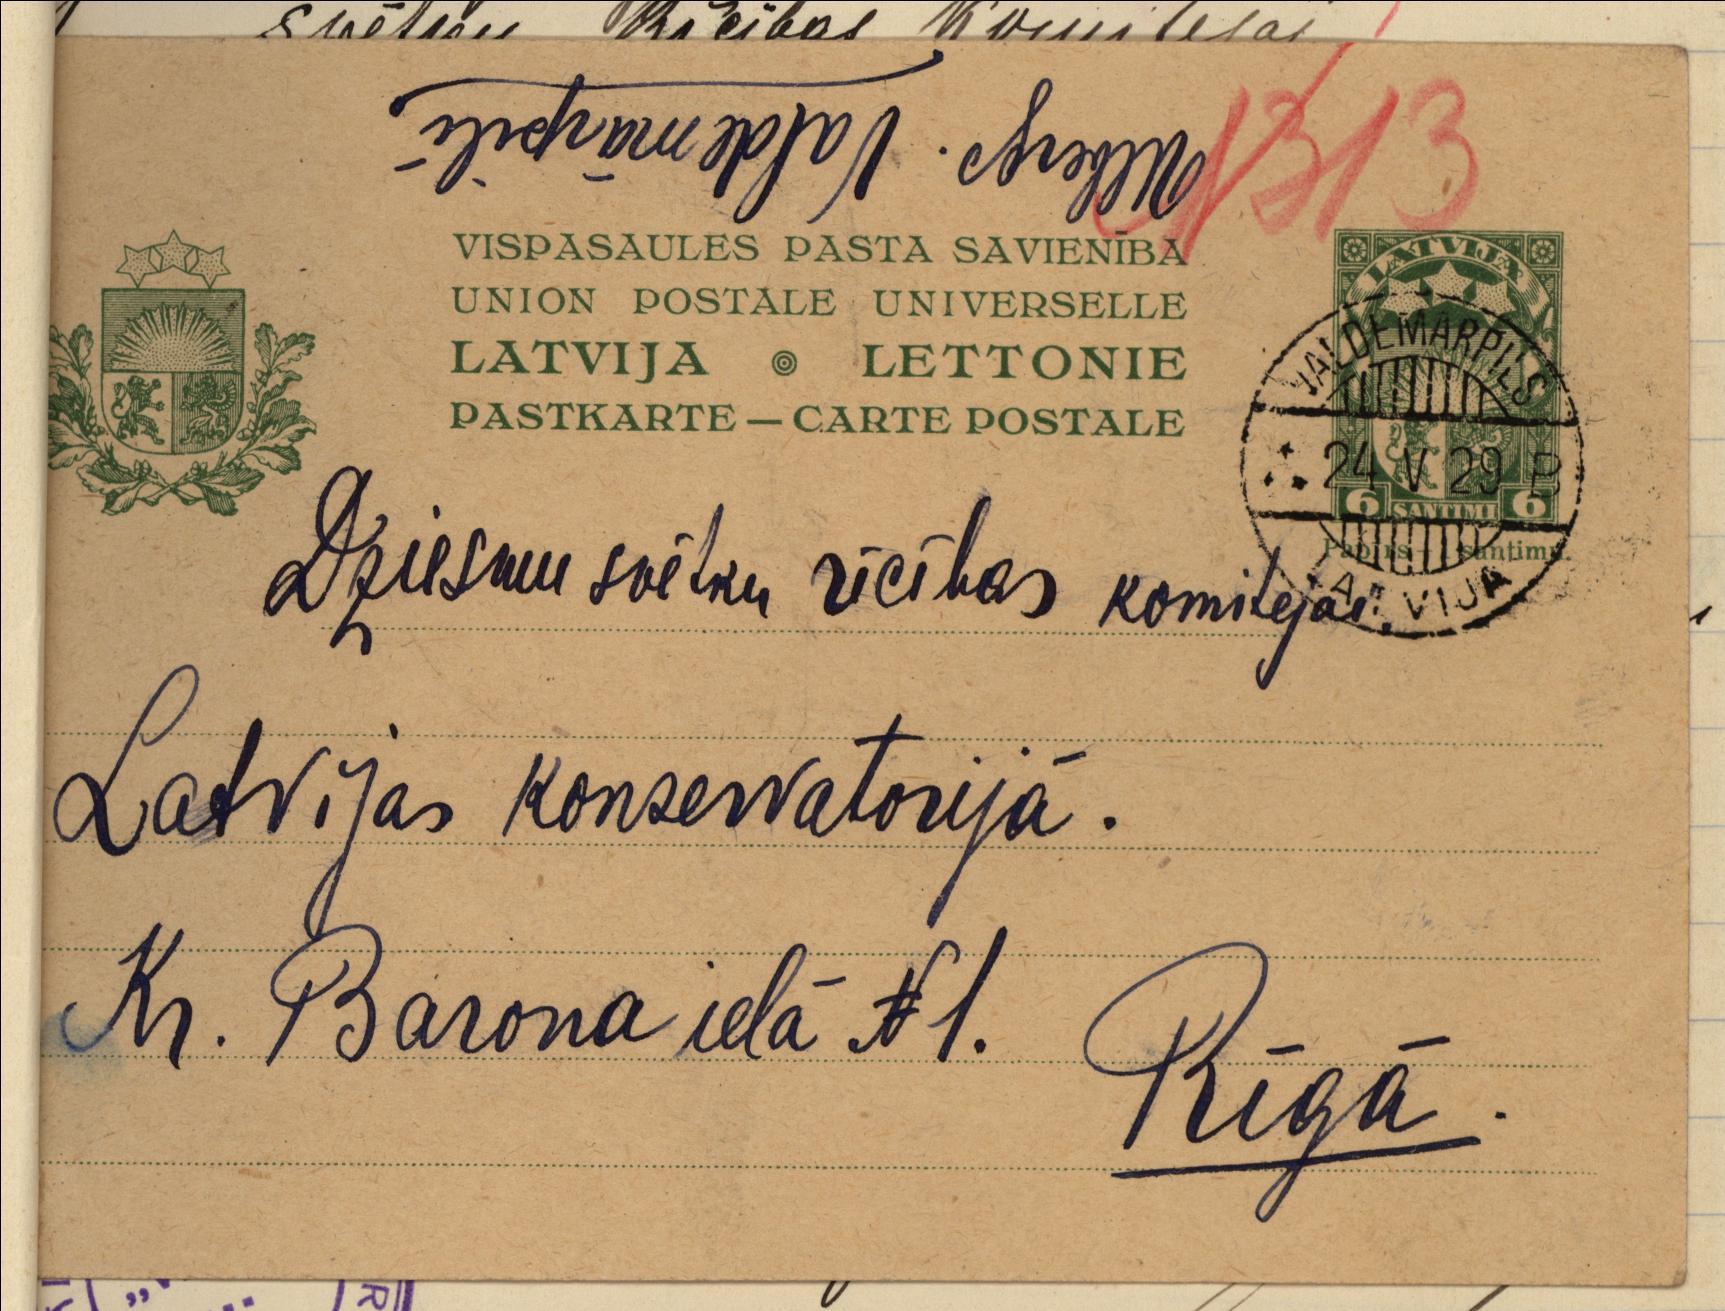 svētku Rīcības Komitejai
Valdemārpilī
1313
VISPASAULES PASTA SAVIENĪBA
UNION POSTALE UNIVERSELLE
LATVIJA LETTONIE
PASTKARTE — CARTE POSTALE
LATVIJA
6 SANTIMI 6
Papīrs santims.
VALDEMARPILS
24 V 29 B
LATVIJA
Dziesmu svētku rīcības komitejai.
Latvijas konservatorijā.
Kr. Barona ielā № 1.
Rīgā.